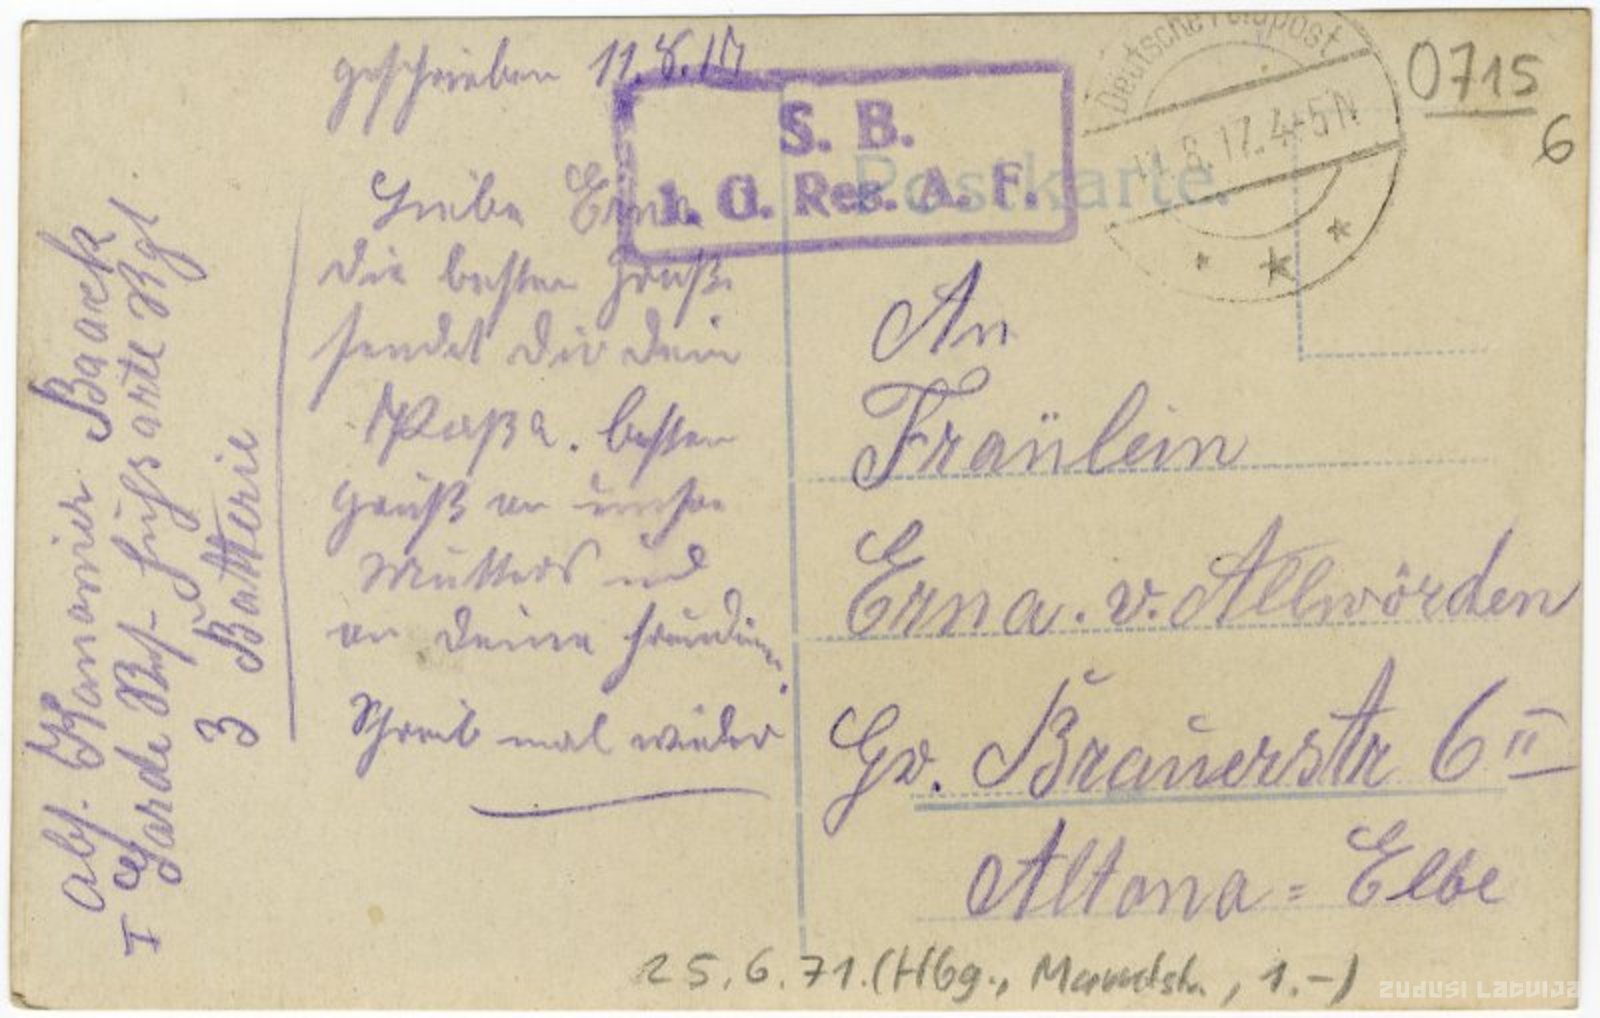 geschrieben 11.8.17
Liebe Erna
die besten Grüße
sendet dir dein
Papa. besten
Gruß an unsre
Mutters und
an deine Freundin.
Schreib mal wieder
Abs. Kanonier Baack
I Garde Res. Fuss arte Rgt.
3 Batterie
S. B.
1. G. Res. A. F.
Postkarte.
Deutsche Feldpost
11.8.17.4-5N
0715
6
An
Fräulein
Erna. v. Allwörden
Gr. Brauerstr 6 II
Altona = Elbe
25.6.71. (Hbg., 1.-)
ZUDUSI LATVIJA